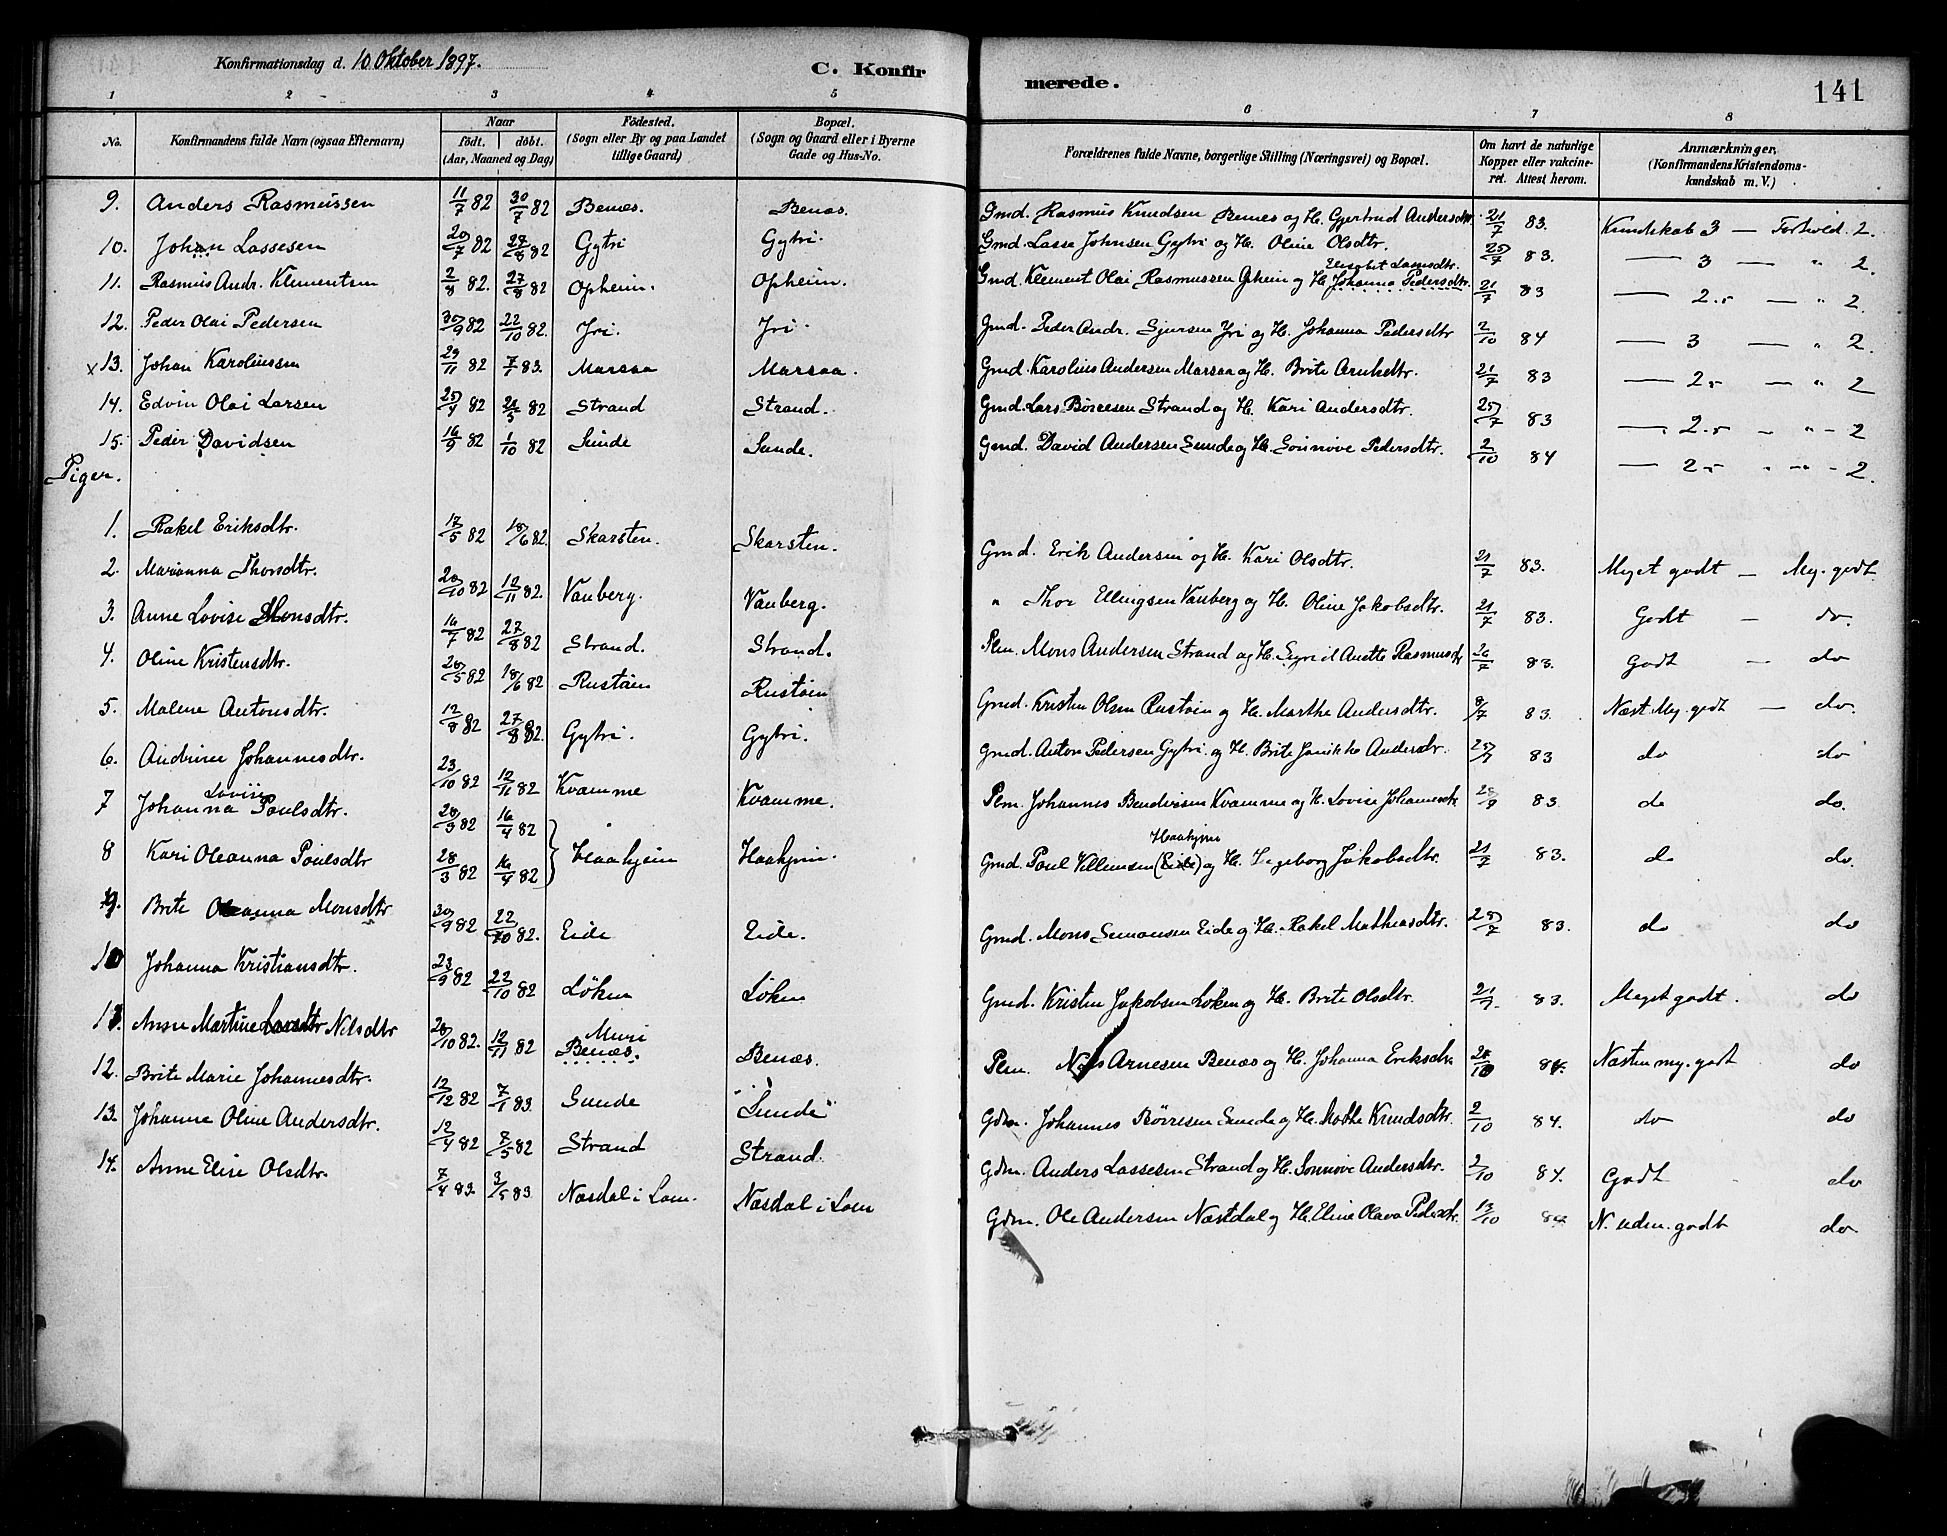 Konfirmationsdag d. 10 Oktober 1897.
C. Konfirmerede.
141
1 2 3 4 5 6 7 8
No. Konfirmandens fulde Navn (ogsaa Efternavn) Naar födt. döbt. (Aar, Maaned og Dag) Födested. (Sogn eller By og paa Landet tillige Gaard) Bopæl. (Sogn og Gaard eller i Byerne Gade og Hus-No. Forældrenes fulde Navne, borgerlige Stilling (Næringsvei) og Bopæl. Om havt de naturlige Kopper eller vakcineret. Attest herom. Anmærkninger, (Konfirmandens Kristendomskundskab m. V.)
9. Anders Rasmussen 11/7 82 30/7 82 Benæs. Benæs. Gmd. Rasmus Knudsen Benæs og H. Gjertrud Andersdtr. 21/7 83. Kundskab 3 — Forhold. 2.
10. Johan Lassesen 20/7 82 27/8 82 Gytri Gytri. Gmd. Lasse Johnsen Gytri og H. Oline Olsdtr. 25/7 83. — 3 — " 2.
11. Rasmus Andr. Klementsen 2/8 82. 27/8 82 Opheim. Opheim. Gmd. Klement Olai Rasmussen Opheim og H. Johanna Pedersdtr. 21/7 83 — 2.5 — " 2.
12. Peder Olai Pedersen 30/9 82 22/10 82. Jri. Jri. Gmd. Peder Andr. Sjursen Yri og H. Johanna Pedersdtr 2/10 84 — 3 — " 2.
x 13. Johan Karoliussen 29/11 82 7/1 83. Marsaa Marsaa. Gmd. Karolius Andersen Marsaa og H. Brite Arnhsdtr. 21/7 83 — 2.5 — " 2
14. Edvin Olai Larsen 25/4 82 21/5 82 Strand Strand. Gmd. Lars Börresen Strand og H. Kari Andersdtr. 25/7 83 — 2.5 — " - 2
15. Peder Davidsen 16/9 82 1/10 82 Sunde Sunde. Gmd. David Andersen Sunde og H. Sönnöve Pedersdtr. 2/10 84 — 2.5 " " - 2.
Piger.
1. Rakel Eriksdtr. 17/5 82 18/6 82. Skarsten. Skarsten. Gmd. Erik Andersen og H. Kari Olsdtr. 21/7 83. Meget godt — Meg. godt
2. Marianna Thorsdtr. 20/10 82 12/11 82. Vanberg. Vanberg. " Thor Ellingsen Vanberg og H. Oline Jakobsdtr. 21/7 83. Godt — do.
3. Anne Lovise Monsdtr. 16/7 82 27/8 82 Strand. Strand. Plm. Mons Andersen Strand og H. Syrid Anette Rasmusdr 26/7 83. Godt — do
4. Oline Kristensdtr. 20/5 82 18/6 82 Rustöien Rustöien Gmd. Kristen Olsen Rustöien og H. Marthe Andersdtr. 9/7 83. Næst Meg. godt — do.
5. Malene Antonsdtr. 12/8 82 27/8 82. Gytri. Gytri. Gmd. Anton Pedersen Gytri og H. Brite Janikke Andersdr. 25/7 83 do do
6. Andrine Johannesdtr. 23/10 82 12/11 82 Kvamme Kvamme. Plm. Johannes Bendixsen Kvamme og H. Lovise Johannesdr 83. do do.
7 Johanna Lovise Poulsdtr. 28/3 82 16/4 82 } Haahjem Haahjem. Gmd. Poul Villumsen (Eide) Haahjem og H. Ingeborg Jakobsdtr. 21/7 83. do do.
8 Kari Oleanna Poulsdtr 28/3 82 16/4 82
9. Brite Oleanna Monsdtr 30/9 82 22/10 82. Eide Eide. Gmd. Mons Simonsen Eide og H. Rakel Mathiasdtr. 25/7 83. do do
10 Johanna Kristiansdtr. 23/9 82 22/10 82 Löken Löken Gmd. Kristen Jakobsen Löken og H. Brite Olsdtr. 21/7 83. Meget godt. do
11. Anne Martine Larsdtr Nilsdtr 28/10 82. 12/11 82 Muri Benæs. Benæs. Plm. Nils Arnesen Benæs og H. Johanna Eriksdtr. 84. Næsten my. godt do
12. Brite Marie Johannesdtr. 12/12 82 7/1 83. Sunde "Sunde" Gdm. Johannes Börresen Sunde og H. Marthe Knudsdtr. 2/10 84. do do
13. Johanne Oline Andersdtr. 12/4 82 7/5 82 Strand Strand. Gdm. Anders Lassesen Strand og H. Sönnöve Andersdtr. 2/10 84. Godt do
14. Anne Elise Olsdtr. 7/4 83. 3/5 83 Næsdal i Lom. Næsdal i Lom Gdm. Ole Andersen Næstdal og H. Eline Olava Pedersdtr. 13/10 84 N. uden. godt do